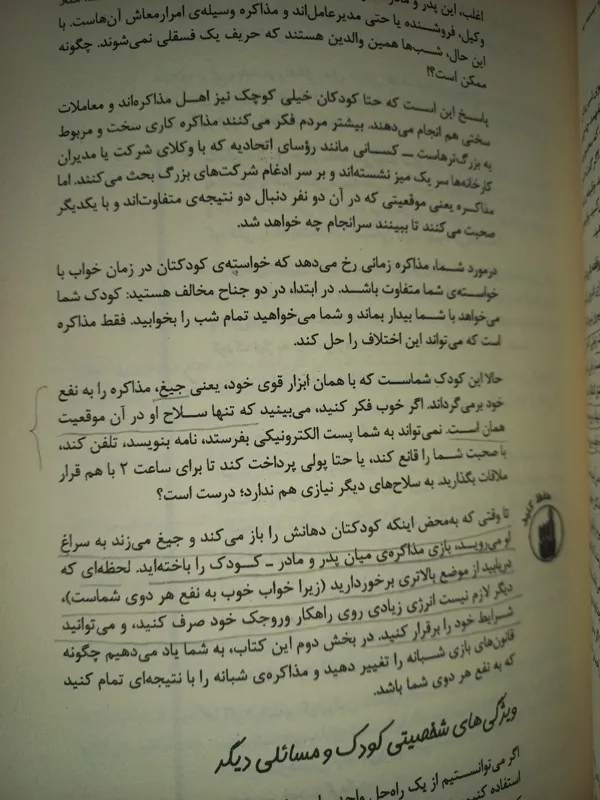 اغلب، این پدر و مادر
وکیل، فروشنده یا حتی مدیرعامل‌اند و مذاکره وسیله‌ی امرارمعاش آن‌هاست. با
این حال، شب‌ها همین والدین هستند که حریف یک فسقلی نمی‌شوند. چگونه
ممکن است؟!
پاسخ این است که حتا کودکان خیلی کوچک نیز اهل مذاکره‌اند و معاملات
سختی هم انجام می‌دهند. بیشتر مردم فکر می‌کنند مذاکره کاری سخت و مربوط
به بزرگ‌ترهاست ــ کسانی مانند رؤسای اتحادیه که با وکلای شرکت یا مدیران
کارخانه‌ها سر یک میز نشسته‌اند و بر سر ادغام شرکت‌های بزرگ بحث می‌کنند. اما
مذاکره یعنی موقعیتی که در آن دو نفر دنبال دو نتیجه‌ی متفاوت‌اند و با یکدیگر
صحبت می‌کنند تا ببینند سرانجام چه خواهد شد.
درمورد شما، مذاکره زمانی رخ می‌دهد که خواسته‌ی کودکتان در زمان خواب با
خواسته‌ی شما متفاوت باشد. در ابتدا، در دو جناح مخالف هستید: کودک شما
می‌خواهد با شما بیدار بماند و شما می‌خواهید تمام شب را بخوابید. فقط مذاکره
است که می‌تواند این اختلاف را حل کند.
حالا این کودک شماست که با همان ابزار قوی خود، یعنی جیغ، مذاکره را به نفع
خود برمی‌گرداند. اگر خوب فکر کنید، می‌بینید که تنها سلاح او در آن موقعیت
همان است. نمی‌تواند به شما پست الکترونیکی بفرستد، نامه بنویسد، تلفن کند،
با صحبت شما را قانع کند، یا حتا پولی پرداخت کند تا برای ساعت ۲ با هم قرار
ملاقات بگذارید. به سلاح‌های دیگر نیازی هم ندارد؛ درست است؟
تا وقتی که به‌محض اینکه کودکتان دهانش را باز می‌کند و جیغ می‌زند به سراغ
او می‌روید، بازی مذاکره‌ی میان پدر و مادر ــ کودک را باخته‌اید. لحظه‌ای که
دریابید از موضع بالاتری برخوردارید (زیرا خواب خوب به نفع هر دوی شماست)،
دیگر لازم نیست انرژی زیادی روی راهکار وروجک خود صرف کنید، و می‌توانید
شرایط خود را برقرار کنید. در بخش دوم این کتاب، به شما یاد می‌دهیم چگونه
قانون‌های بازی شبانه را تغییر دهید و مذاکره‌ی شبانه را با نتیجه‌ای تمام کنید
که به نفع هر دوی شما باشد.
ویژگی‌های شخصیتی کودک و مسائلی دیگر
اگر می‌توانستیم از یک راه‌حل واحد